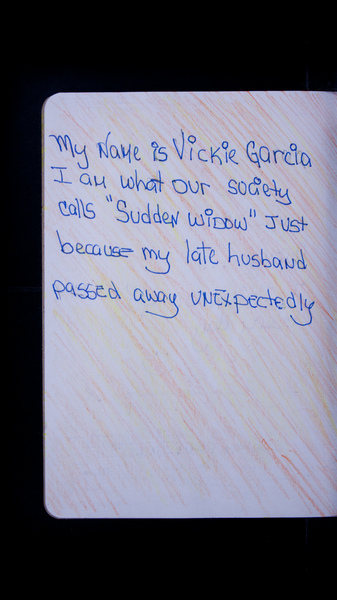 My Name is Vickie Garcia
I am what our society
calls "Sudden Widow" Just
because my late husband
passed away UNExpectedly